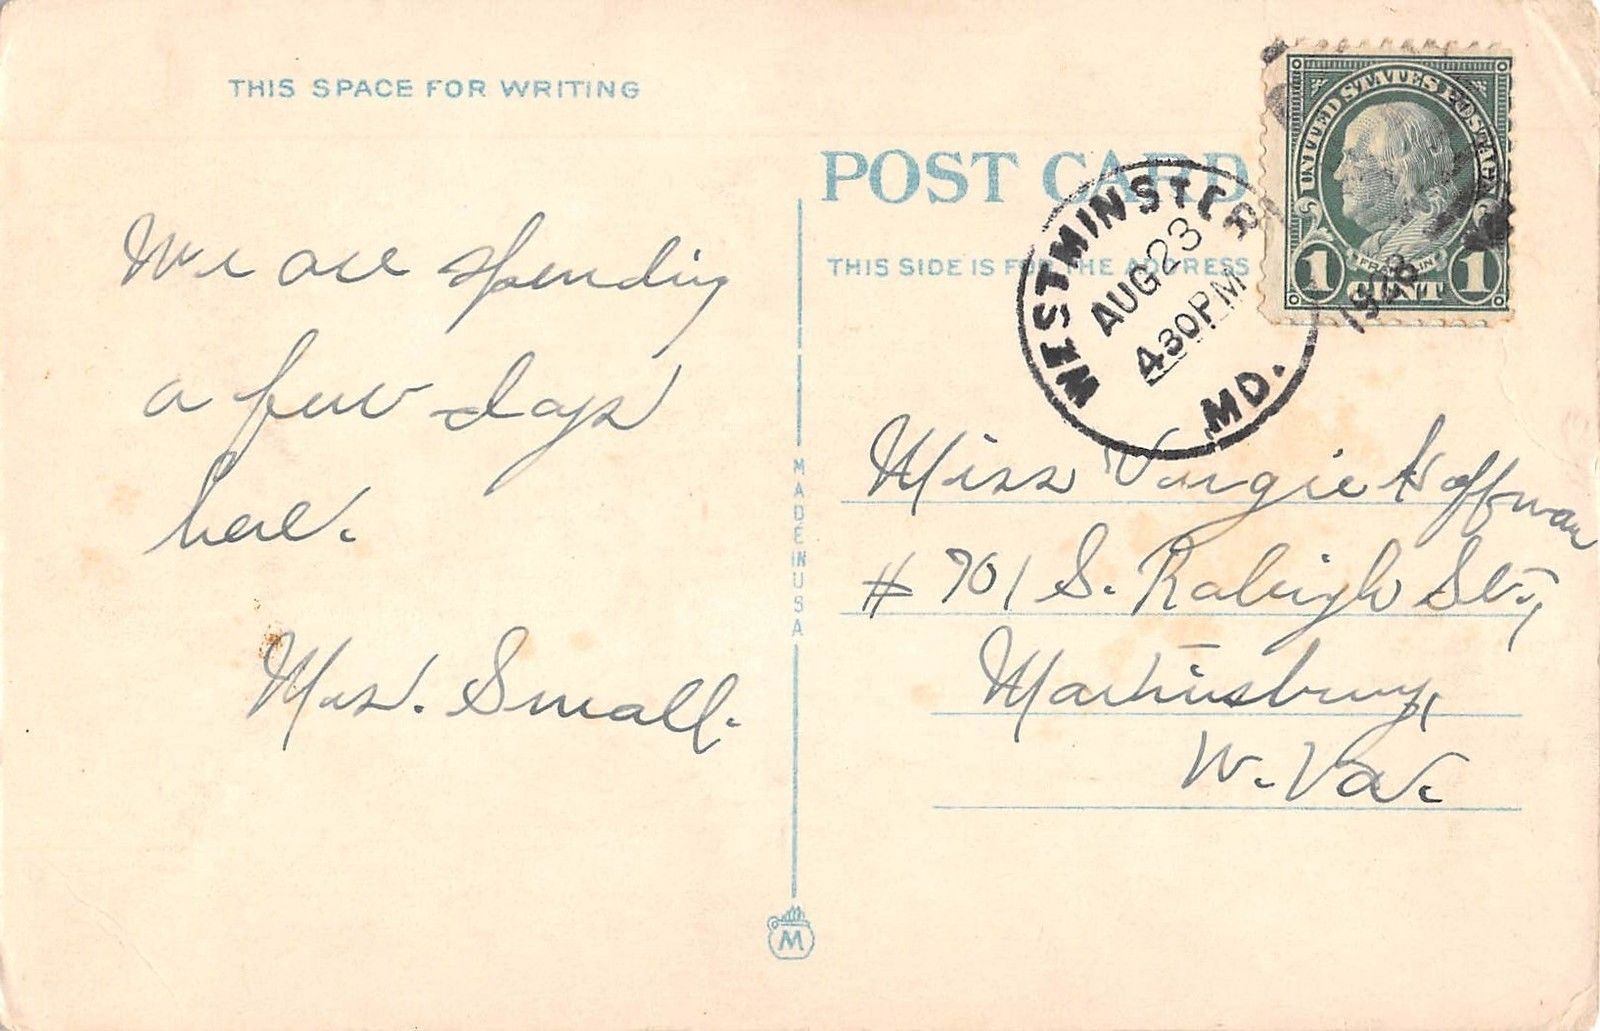 THIS SPACE FOR WRITING
We are spending
a few days
here.
Mrs. Small.
MADE IN USA
M
POST CARD
THIS SIDE IS FOR THE ADDRESS
WESTMINSTER
AUG 23
430PM
MD.
UNITED STATES POSTAGE
FRANKLIN
1 CENT 1
Miss Virgie Hoffman
# 701 S. Raleigh St.,
Martinsburg,
W. Va.